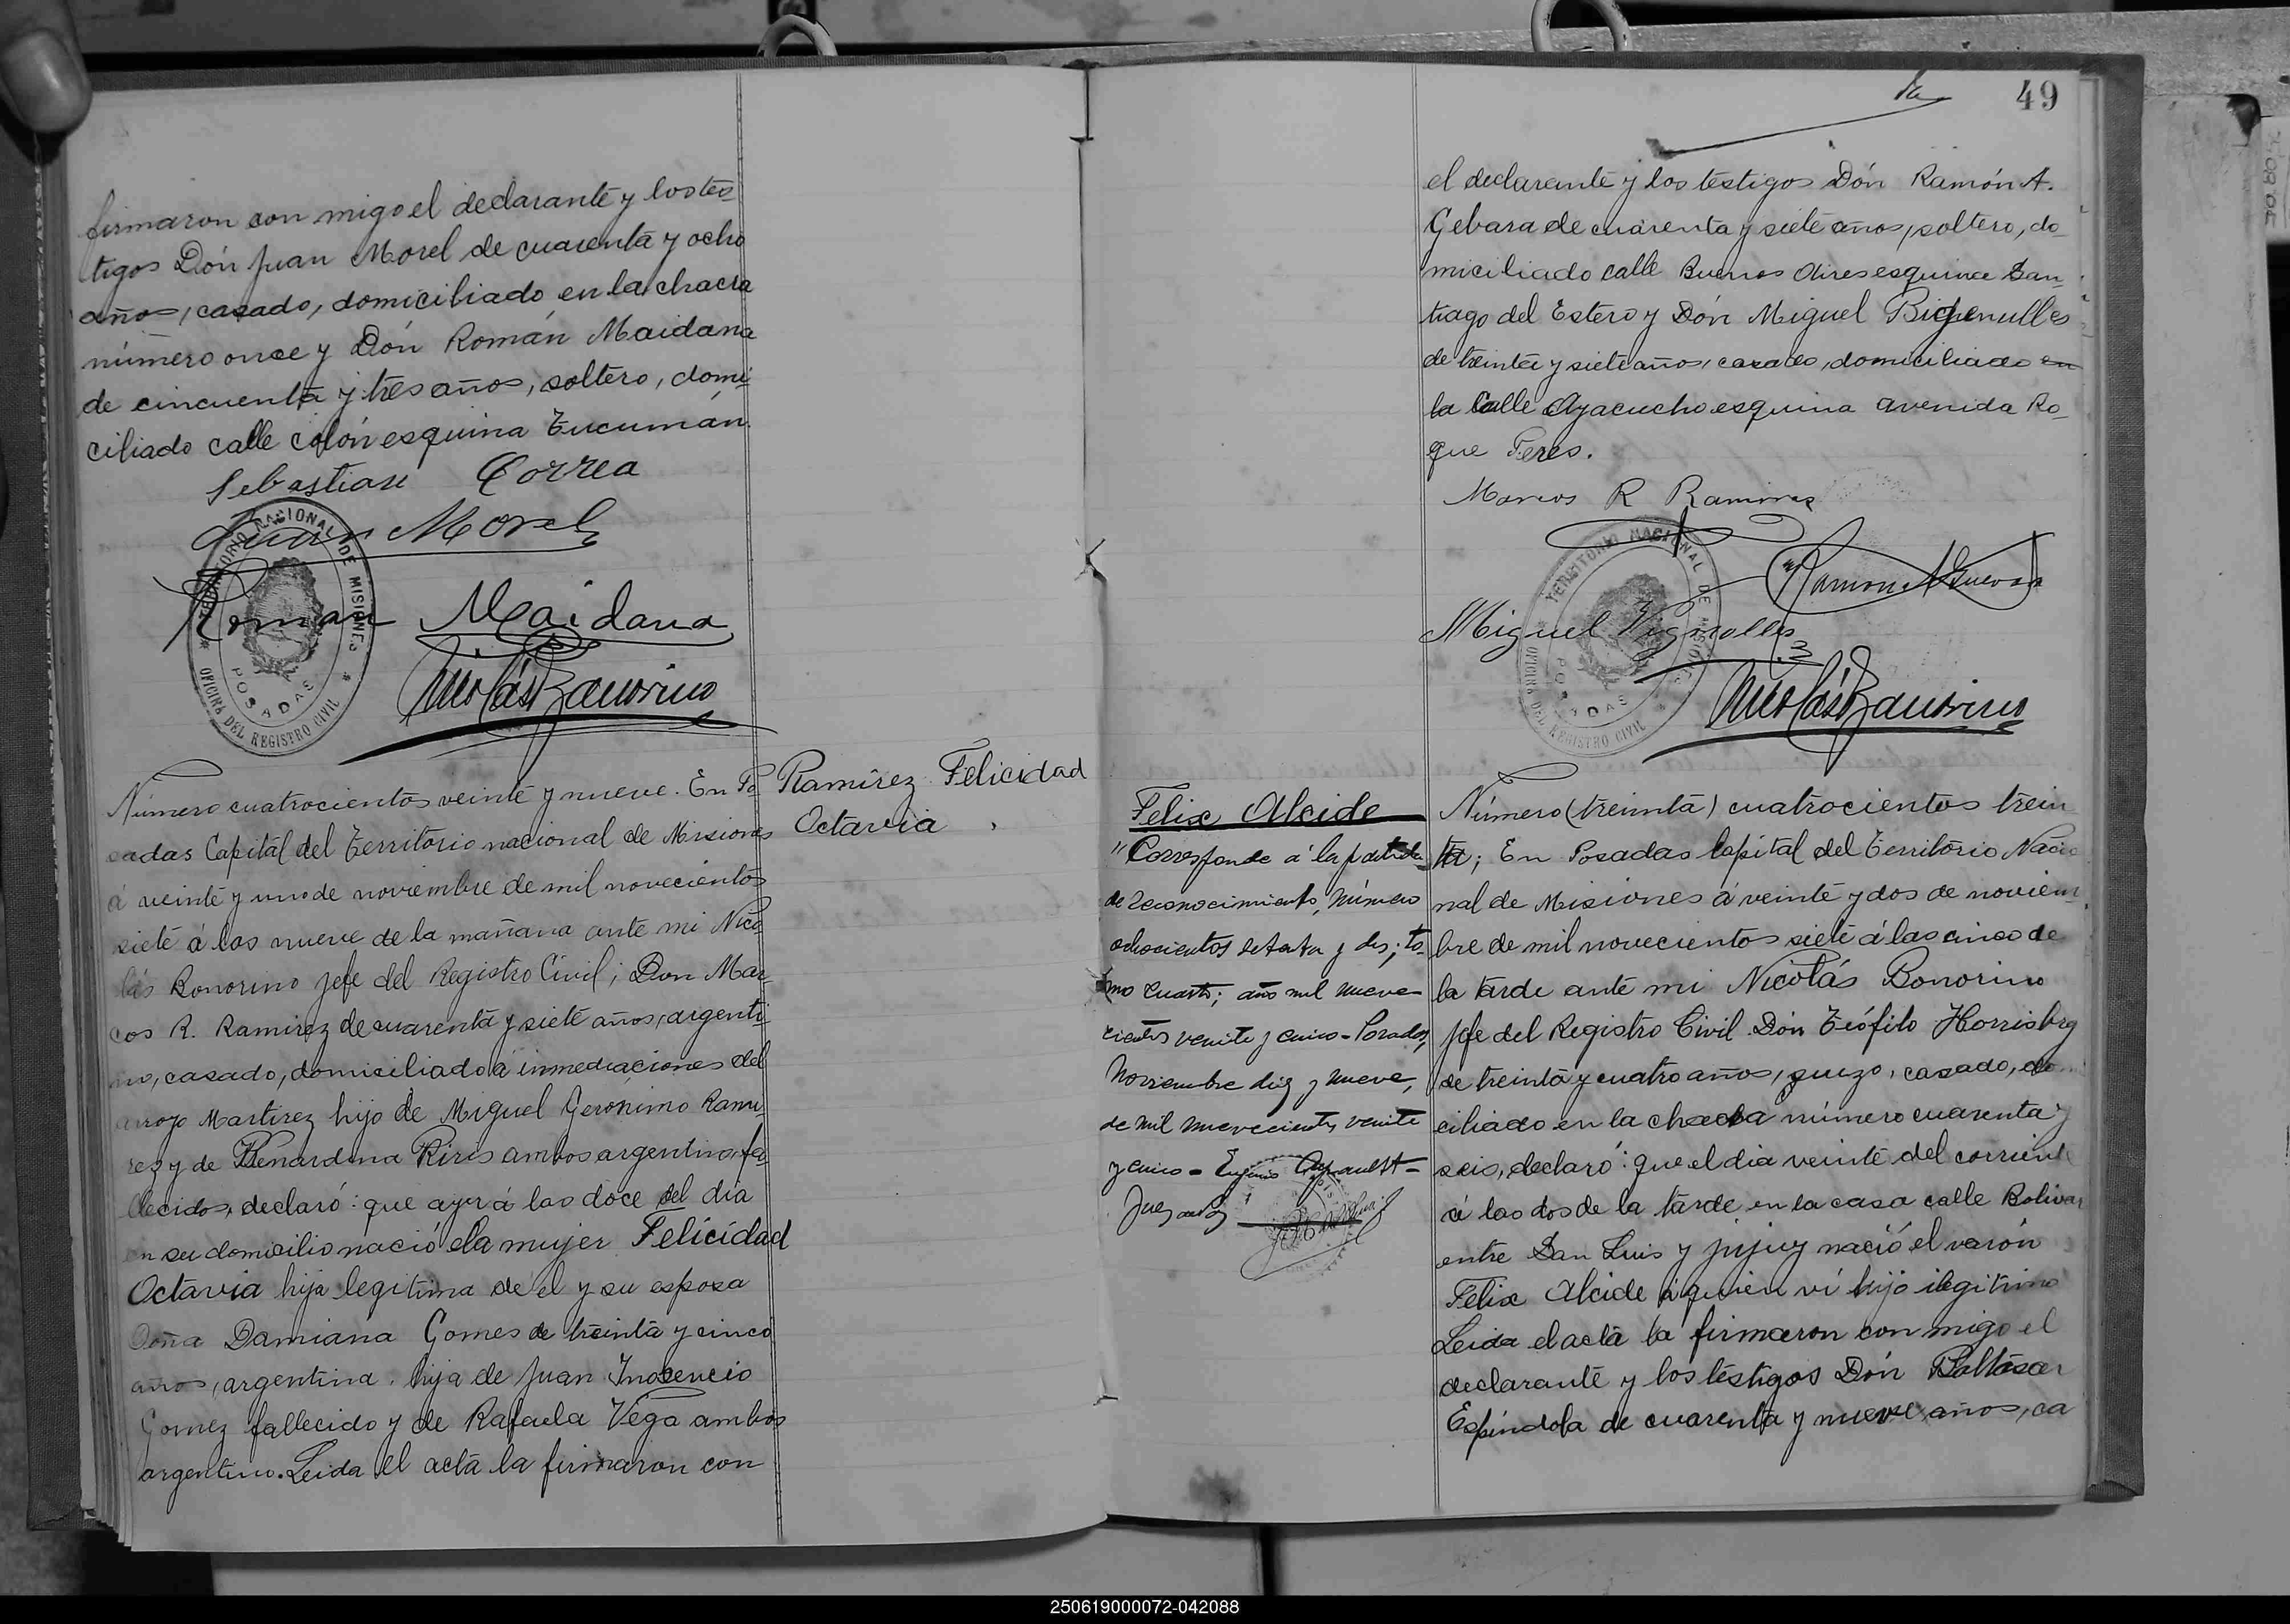 firmaron con migo el declarante y los tes-
tigos Dón Juan Morel de cuarenta y ocho
años, casado, domiciliado en la chacra
número once y Dón Román Maidana
de cincuenta y tres años, soltero, domi-
ciliado calle colón esquina Tucumán.
Sebastian Correa
Juan Morel
Roman Maidana
Nicolás Bonorino
TERRITORIO NACIONAL DE MISIONES
POSADAS
OFICINA DEL REGISTRO CIVIL
Ramírez Felicidad
Octavia
Número cuatrocientos veinte y nueve. En Po
sadas Capitál del Territorio nacional de Misiones
á veinte y uno de noviembre de mil novecientos
siete á las nueve de la mañana ante mi Nico
lás Bonorino Jefe del Registro Civil; Don Mar-
cos R. Ramirez de cuarenta y siete años, argenti-
no, casado, domiciliado á inmediaciones del
arroyo Martirez hijo de Miguel Geronimo Rami
rez y de Benardina Riris ambos argentinos, fa-
llecidos, declaró: que ayer á las doce del dia
en su domicilio nació la mujer Felicidad
Octavia hija legitima de él y su esposa
Doña Damiana Gomes de treinta y cinco
años, argentina, hija de Juan Inosencio
Gomez fallecido y de Rafaela Vega ambos
argentino. Leida el acta la firmaron con
49
el declarante y los testigos Dón Ramón A.
Gebara de cuarenta y siete años, soltero, do-
miciliado calle Buenos Aires esquina San-
tiago del Estero y Dón Miguel
de treinta y siete años, casado, domiciliado en
la Calle Ayacucho esquina avenida Ro-
que Peres.
Marcos R Ramirez
Ramon A
Miguel Vignolles
Nicolás Bonorino
TERRITORIO NACIONAL DE MISIONES
POSADAS
OFICINA DEL REGISTRO CIVIL
Felix Alcide
"Corresponde á la partida
de reconocimiento, número
ochocientos setenta y dos; to-
mo cuarto; año mil nueve-
cientos veinte y cinco - Posadas,
Noviembre diez y nueve,
de mil nuevecientos veinte
y cinco - Eugenio
Juez de Paz
Número (treinta) cuatrocientos trein
ta; En Posadas Capitál del Territorio Nacio
nal de Misiones á veinte y dos de noviem
bre de mil novecientos siete á las cinco de
la tarde ante mi Nicolás Bonorino
Jefe del Registro Civil Dón Teófilo
de treinta y cuatro años, suizo, casado, do
ciliado en la chacra número cuarenta y
seis, declaró: que el dia veinte del corriente
á las dos de la tarde en la casa calle Bolivar
entre San Luis y Jujuy nació el varón
Felix Alcide á quien ví hijo ilegitimo
Leida el acta la firmaron con migo el
declarante y los testigos Dón Baltasar
Espíndola de cuarenta y nueve años, ca
250619000072-042088